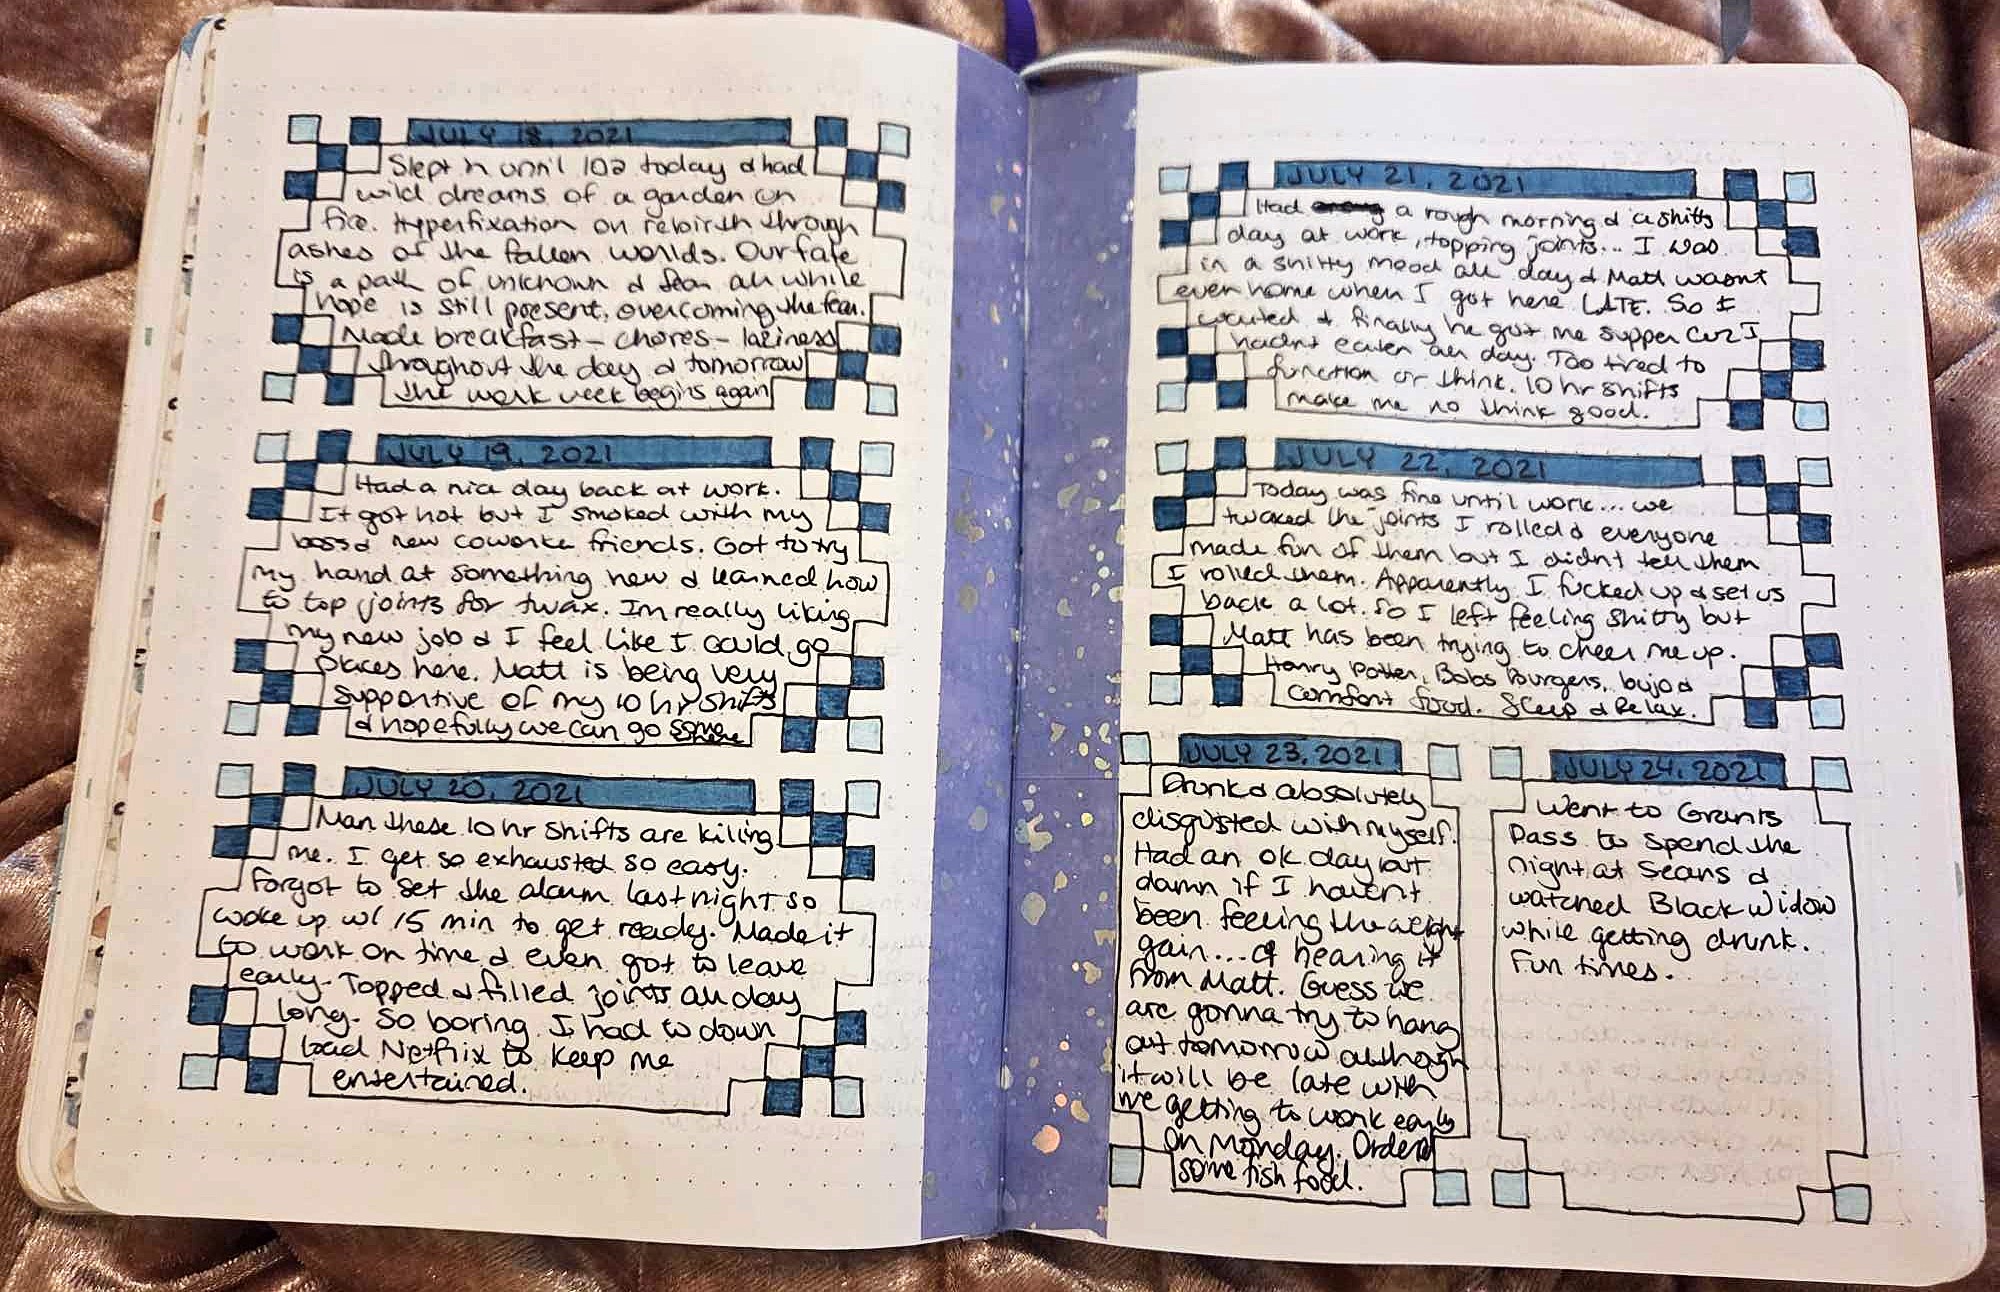 JULY 18, 2021
Slept n until 10a today & had
wild dreams of a garden on
fire. Hyperfixation on rebirth through
ashes of the fallen worlds. Our fate
is a path of unknown & fear all while
hope is still present, overcoming the fear.
Made breakfast - chores - laziness
throughout the day & tomorrow
the work week begins again
JULY 19, 2021
Had a nice day back at work.
It got hot but I smoked with my
boss & new coworker friends. Got to try
my hand at something new & learned how
to top joints for twax. Im really liking
my new job & I feel like I could go
places here. Matt is being very
supportive of my 10 hr shifts
& hopefully we can go somewhere
JULY 20, 2021
Man these 10 hr shifts are killing
me. I get so exhausted so easy.
Forgot to set the alarm last night so
woke up w/ 15 min to get ready. Made it
to work on time & even got to leave
early. Topped & filled joints all day
long. So boring I had to down
load Netflix to keep me
entertained.
JULY 21, 2021
Had a rough morning & a shitty
day at work, topping joints... I was
in a shitty mood all day & Matt wasnt
even home when I got here LATE. So I
waited & finally he got me supper cuz I
hadnt eaten all day. Too tired to
function or think. 10 hr shifts
make me no think good.
JULY 22, 2021
Today was fine until work... we
twaxed the joints I rolled & everyone
made fun of them but I didnt tell them
I rolled them. Apparently I fucked up & set us
back a lot. So I left feeling shitty but
Matt has been trying to cheer me up.
Harry Potter, Bobs Burgers, bujo &
comfort food. Sleep & Relax.
JULY 23, 2021
Drunk & absolutely
disgusted with myself.
Had an ok day but
damn if I havent
been feeling the weight
gain... & hearing it
from Matt. Guess we
are gonna try to hang
out tomorrow although
it will be late with
me getting to work early
on Monday. Ordered
some fish food.
JULY 24, 2021
Went to Grants
Pass to spend the
night at Seans &
watched Black Widow
while getting drunk.
Fun times.